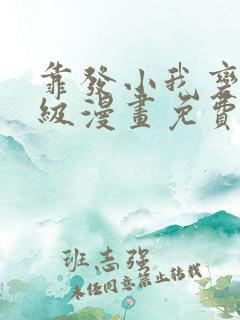 靠發小我變
級漫畫免費
班志强
未经同意禁止转载